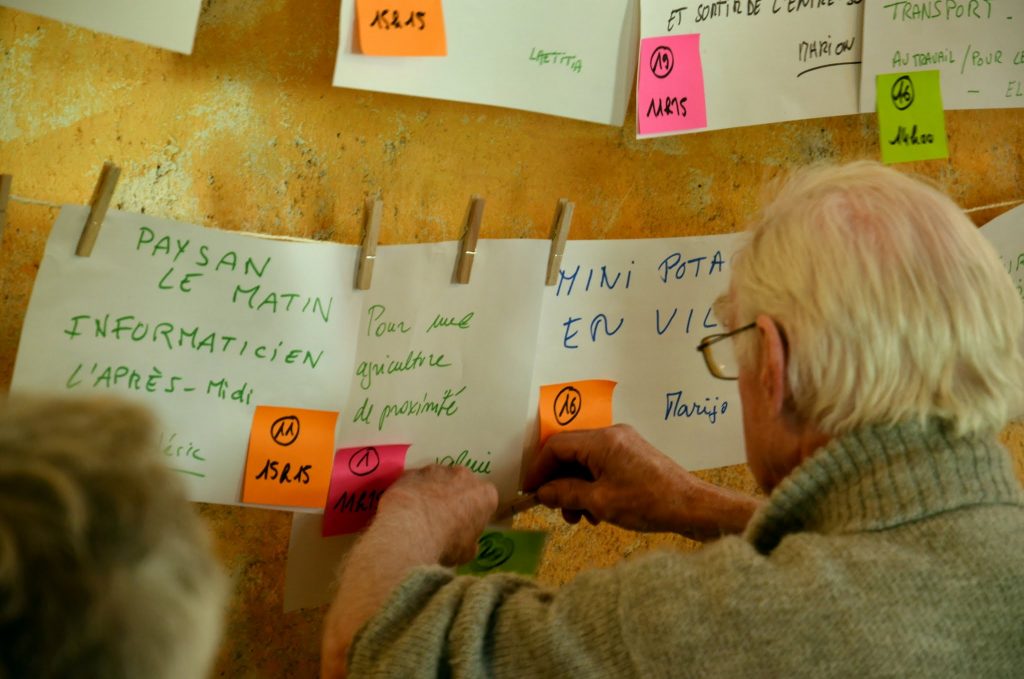 15h15
LAETITIA
ET SORTIR DE L'ENTRE
MARION
19
11h15
TRANSPORT.
AU TRAVAIL / POUR
16
14h00
PAYSAN
LE MATIN
INFORMATICIEN
L'APRÈS-MIDI
11
15h15
Pour une
agriculture
de proximité
1
11h15
MINI
EN
Marijo
16